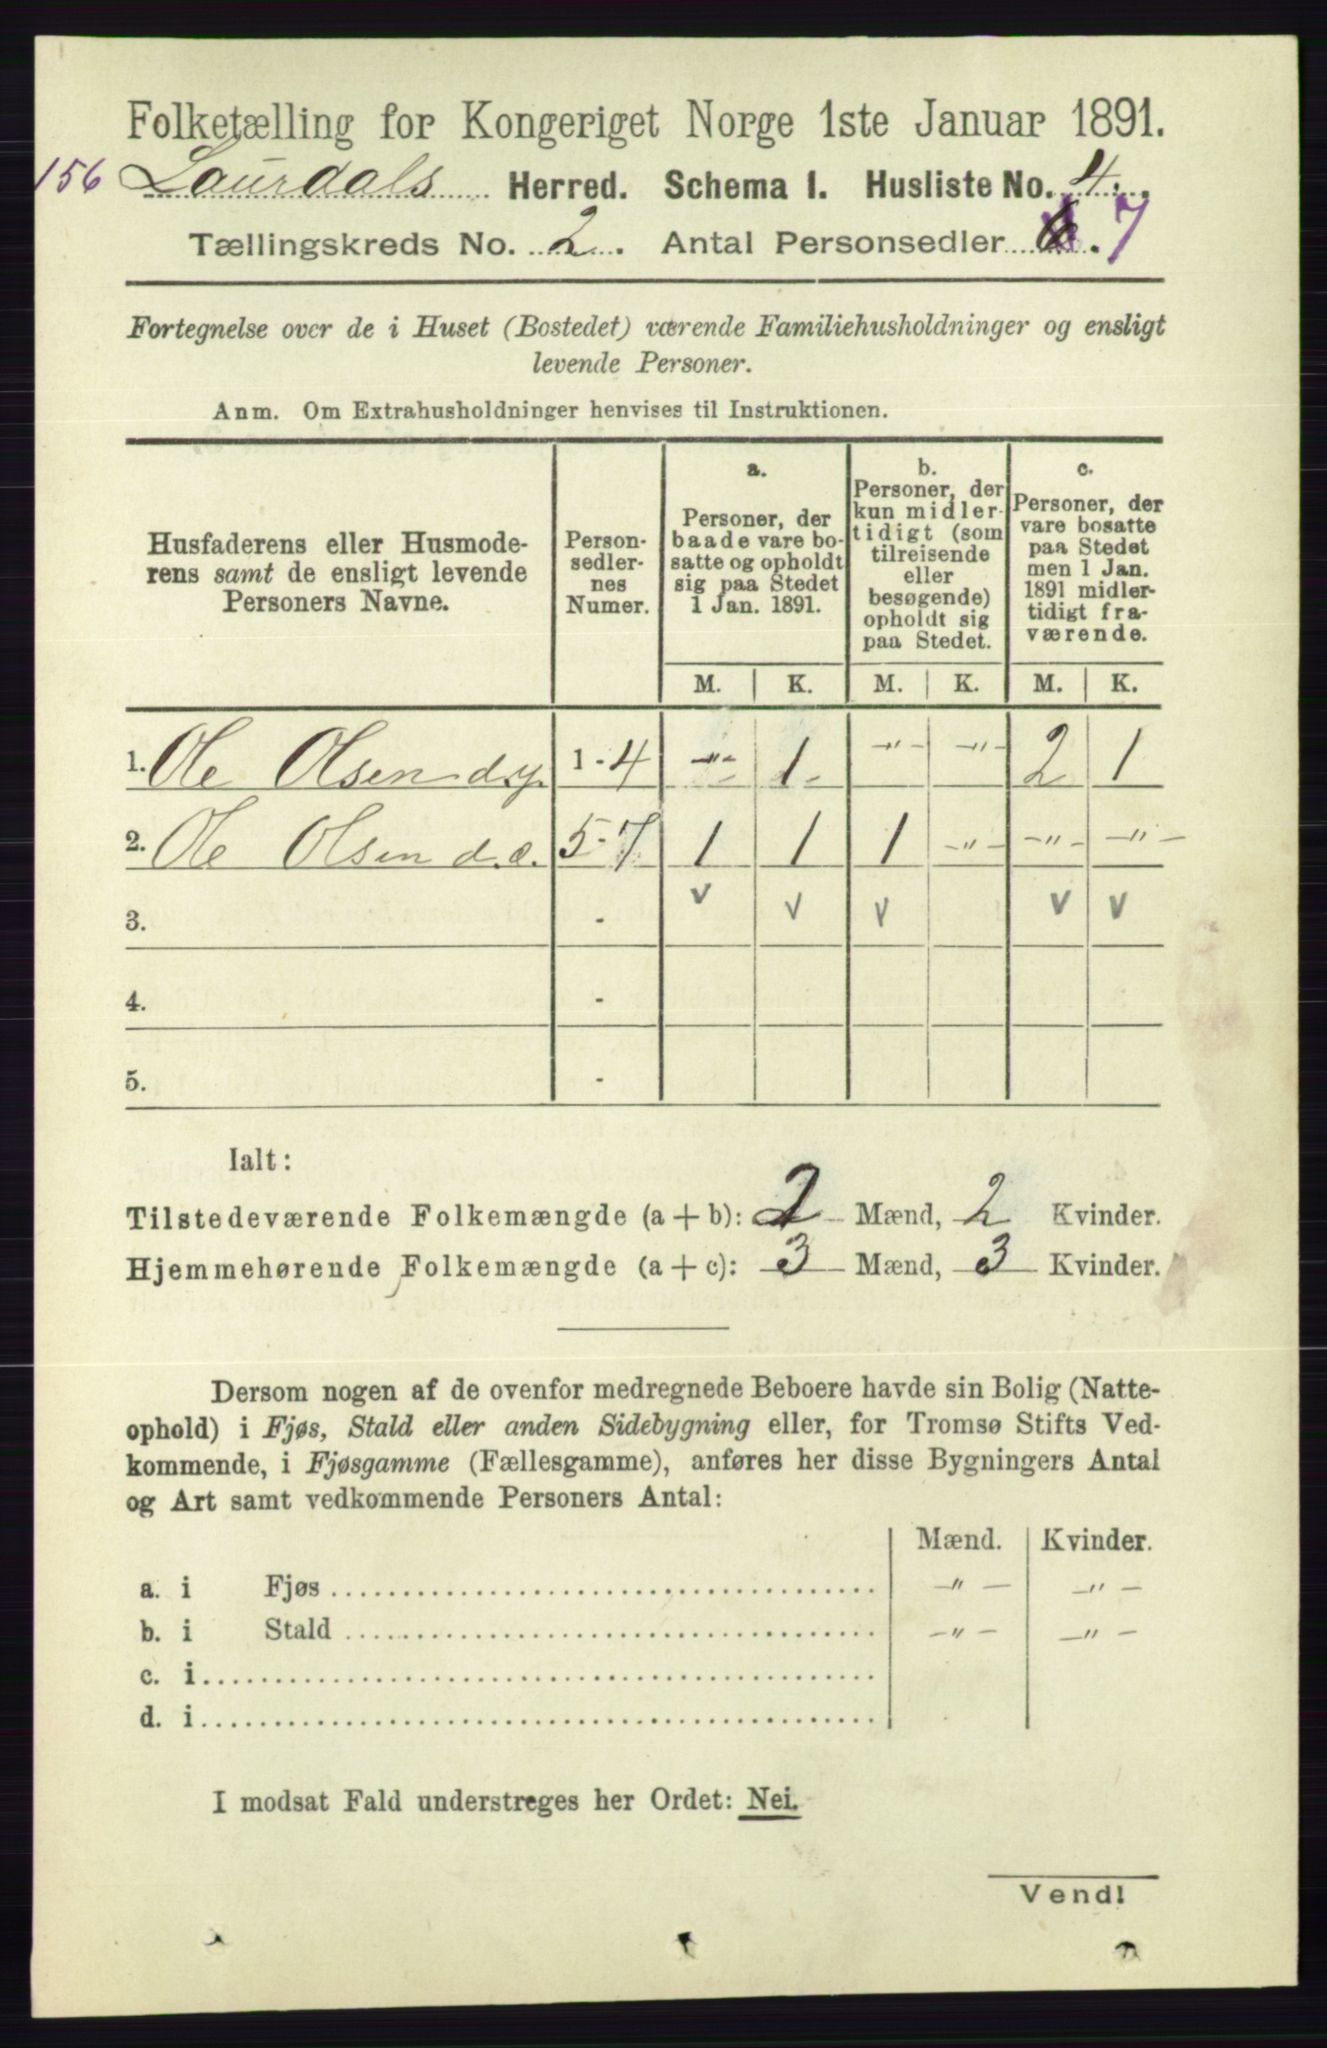 Folketælling for Kongeriget Norge 1ste Januar 1891.
156 Laurdals Herred. Schema 1. Husliste No. 4.
Tællingskreds No. 2. Antal Personsedler 7
Fortegnelse over de i Huset (Bostedet) værende Familiehusholdninger og ensligt
levende Personer.
Anm. Om Extrahusholdninger henvises til Instruktionen.
Husfaderens eller Husmode-
rens samt de ensligt levende
Personers Navne.
Person-
sedler-
nes
Numer.
a.
Personer, der
baade vare bo-
satte og opholdt
sig paa Stedet
1 Jan. 1891.
b.
Personer, der
kun midler-
tidigt (som
tilreisende
eller
besøgende)
opholdt sig
paa Stedet.
c.
Personer, der
vare bosatte
paa Stedet
men 1 Jan.
1891 midler-
tidigt fra-
værende.
M. K. M. K. M. K.
1. Ole Olsen d.y. 1-4 -"- 1 -"- -"- 2 1
2. Ole Olsen d.e. 5-7 1 1 1 -"- -"- -"-
v v v v v
3. -
4. -
5. -
Ialt:
Tilstedeværende Folkemængde (a + b): 2 Mænd, 2 Kvinder.
Hjemmehørende Folkemængde (a + c): 3 Mænd, 3 Kvinder.
Dersom nogen af de ovenfor medregnede Beboere havde sin Bolig (Natte-
ophold) i Fjøs, Stald eller anden Sidebygning eller, for Tromsø Stifts Ved-
kommende, i Fjøsgamme (Fællesgamme), anføres her disse Bygningers Antal
og Art samt vedkommende Personers Antal:
Mænd. Kvinder.
a. i Fjøs -"- -"-
b. i Stald -"- -"-
c. i
d. i
I modsat Fald understreges her Ordet: Nei.
Vend!